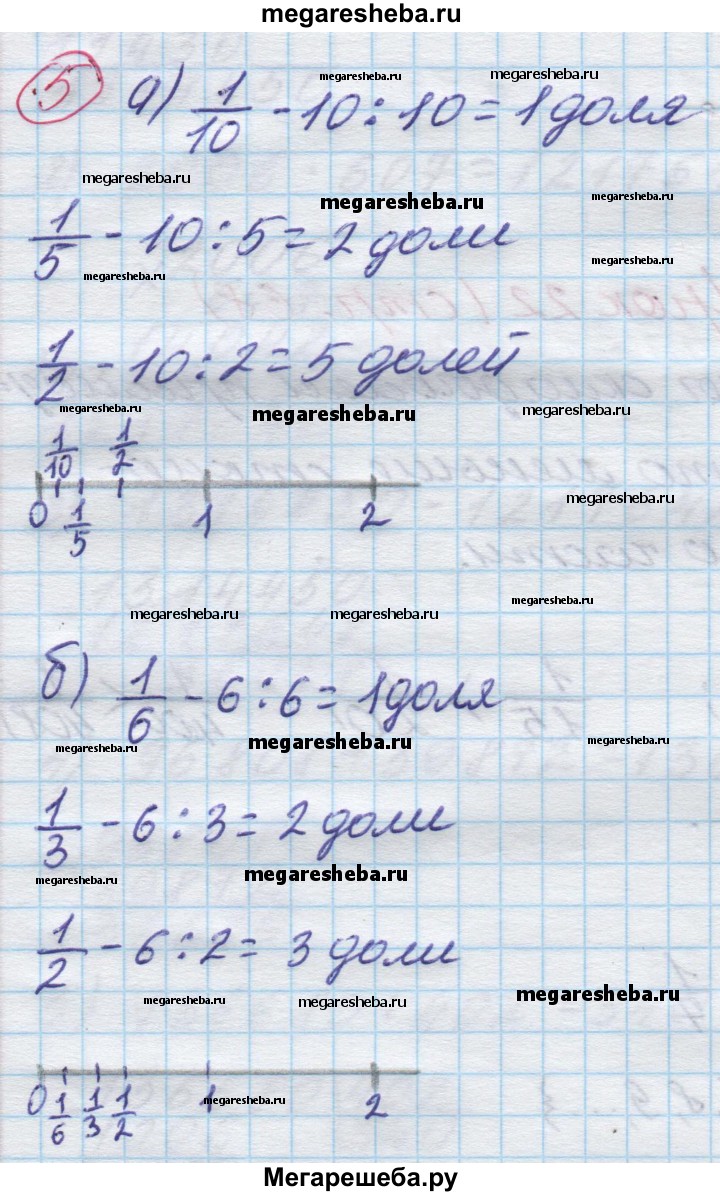 megaresheba.ru
5 а) 1/10 - 10 : 10 = 1 доля
megaresheba.ru megaresheba.ru
megaresheba.ru megaresheba.ru megaresheba.ru
1/5 - 10 : 5 = 2 доли
megaresheba.ru megaresheba.ru
1/2 - 10 : 2 = 5 долей
megaresheba.ru megaresheba.ru megaresheba.ru
1/10 1/2
0 1/5 1 2
megaresheba.ru
megaresheba.ru
megaresheba.ru megaresheba.ru
б) 1/6 - 6 : 6 = 1 доля
megaresheba.ru megaresheba.ru megaresheba.ru
1/3 - 6 : 3 = 2 доли
megaresheba.ru megaresheba.ru
1/2 - 6 : 2 = 3 доли
megaresheba.ru megaresheba.ru megaresheba.ru
0 1/6 1/3 1/2 1 2
megaresheba.ru
Мегарешеба.ру